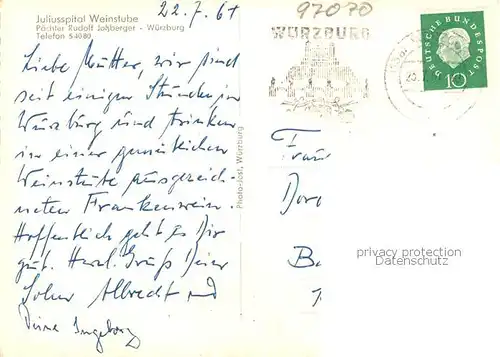 Juliusspital Weinstube
Pächter Rudolf Joßberger - Würzburg
Telefon 54080
22.7.61
97070
WÜRZBURG
DEUTSCHE BUNDESPOST
10
Liebe Mutter, wir sind
seit einigen Stunden in
Würzburg und trinken
in einer gemütlichen
Weinstube ausgezeich-
neten Frankenwein.
Hoffentlich geht es Dir
gut. Herzl. Grüße Deiner
Sohn Albrecht und
Deine Ingeborg
Photo-Jost, Würzburg
Frau
Doro
B
privacy protection
Datenschutz